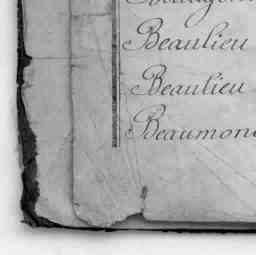 Beaulieu
Beaulieu
Beaumon